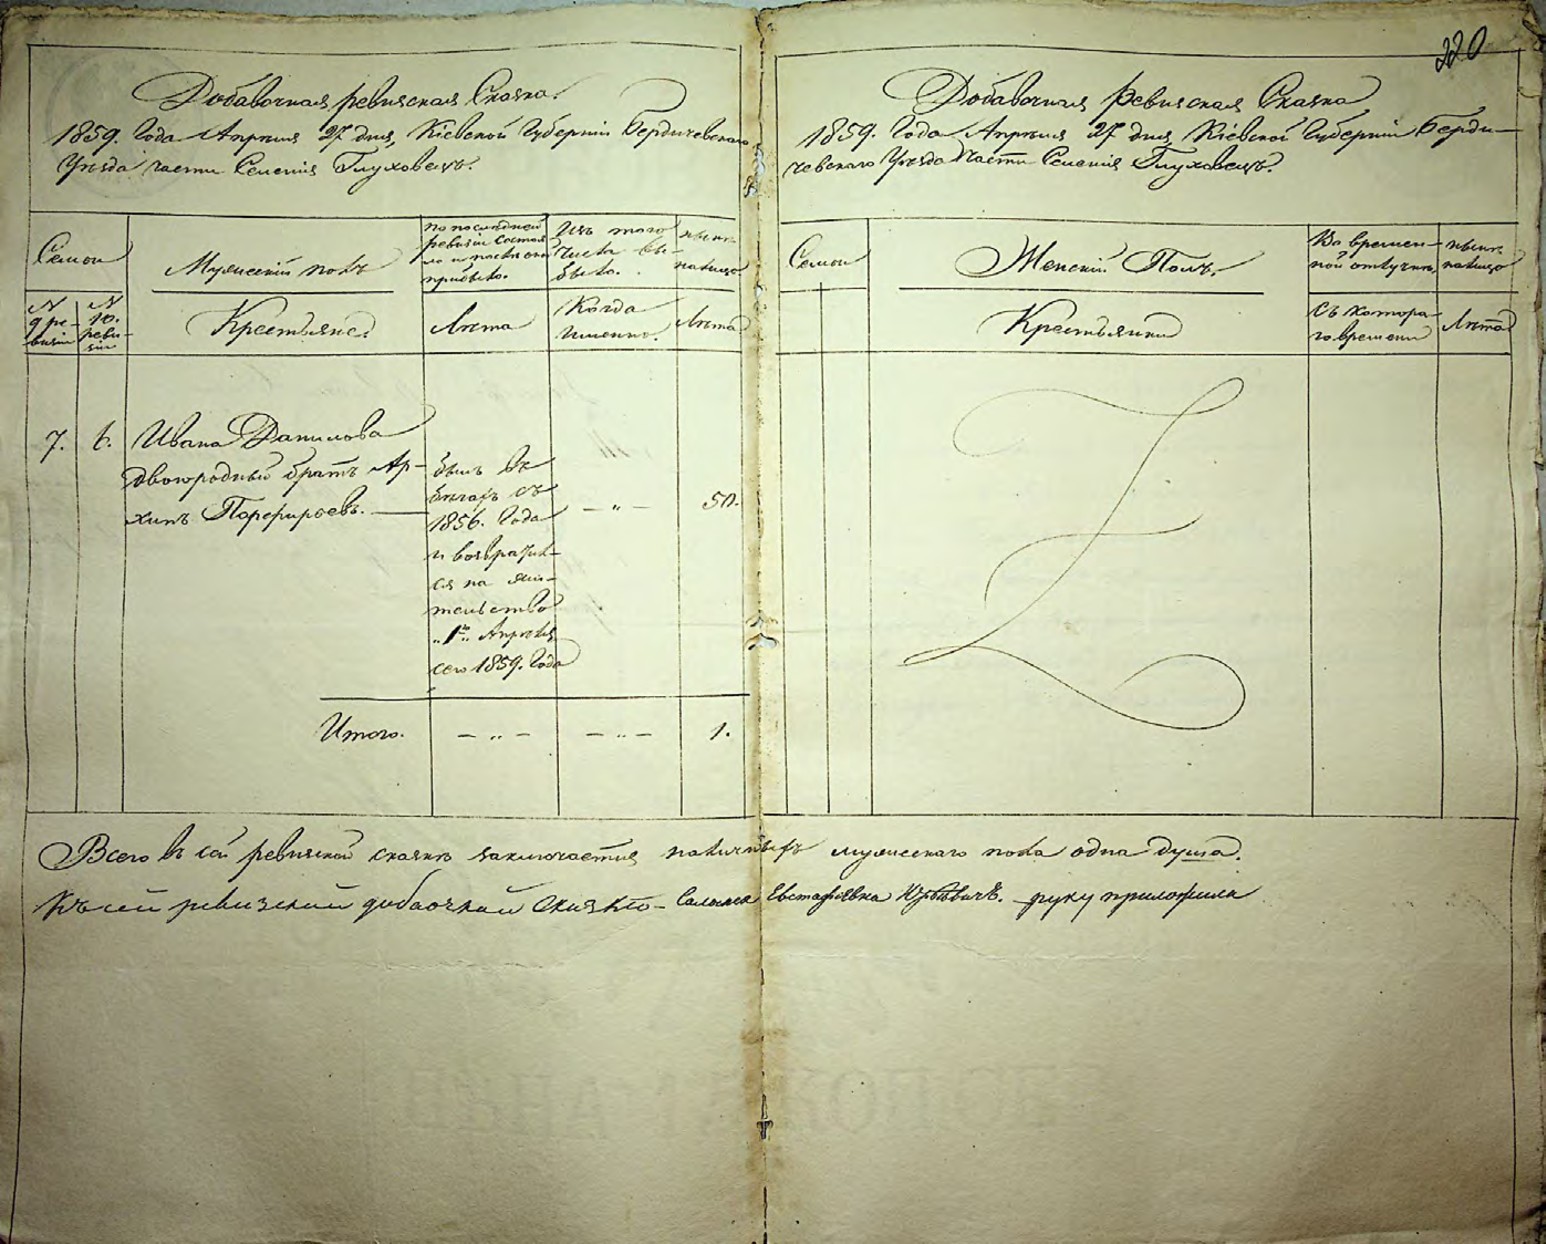 220
Добавочная ревизская Сказка.
1859. Года Апреля 27 дня, Кіевской Губерніи Бердичевскаго
Уѣзда части Селенія Глуховецъ.
Семьи
Мужескій полъ
по последней ревизіи состояло и после оной прибыло.
Изъ того числа выбыло.
ныне налицо
№ 9 ревизіи
№ 10. ревизіи
Крестьяне.
Лѣта
Когда именно.
Лѣта
7.
6.
Ивана Данилова
двоюродный братъ Ар-
хипъ Порфироевъ.
былъ въ
бегахъ съ
1856. Года
и возвратил-
ся на жи-
тельство
„1го„ Апреля
сего 1859. Года
— „ —
50.
Итого.
— „ —
— „ —
1.
Добавочная Ревизская Сказка
1859. Года Апреля 27 дня, Кіевской Губерніи Берди-
чевскаго Уѣзда Части Селенія Глуховецъ.
Семьи
Женскій Полъ.
Во времен-
ной отлучке,
ныне
налицо
Крестьянки
Съ котора-
го времени
Лѣта
Всего въ сей ревизской сказке заключается наличныхъ мужескаго пола одна душа.
Къ сей ревизской добаочной Сказке - Евстафіевна руку приложила